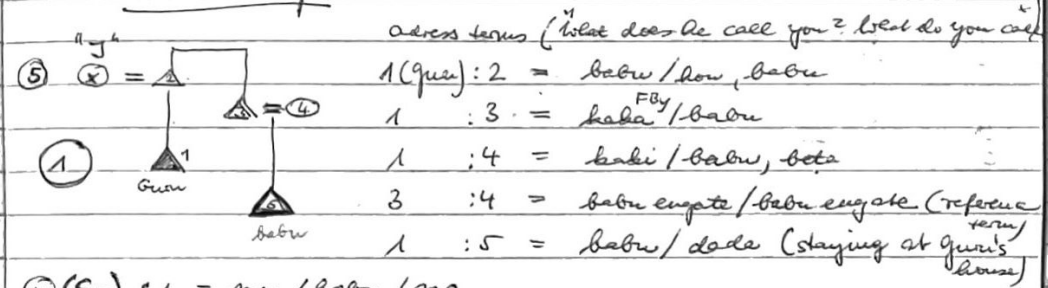 adress terms (What does he call you? What do you call
"y"
⑤ x = 2 1 (Guru) : 2 = babu / hou, babu
3 = 4 1 : 3 = kaka FBy / babu
① 1 1 : 4 = kaki / babu, beta
Guru 5 3 : 4 = babu engate / babu engate (reference term)
babu 1 : 5 = babu / dada (staying at Guru's house)